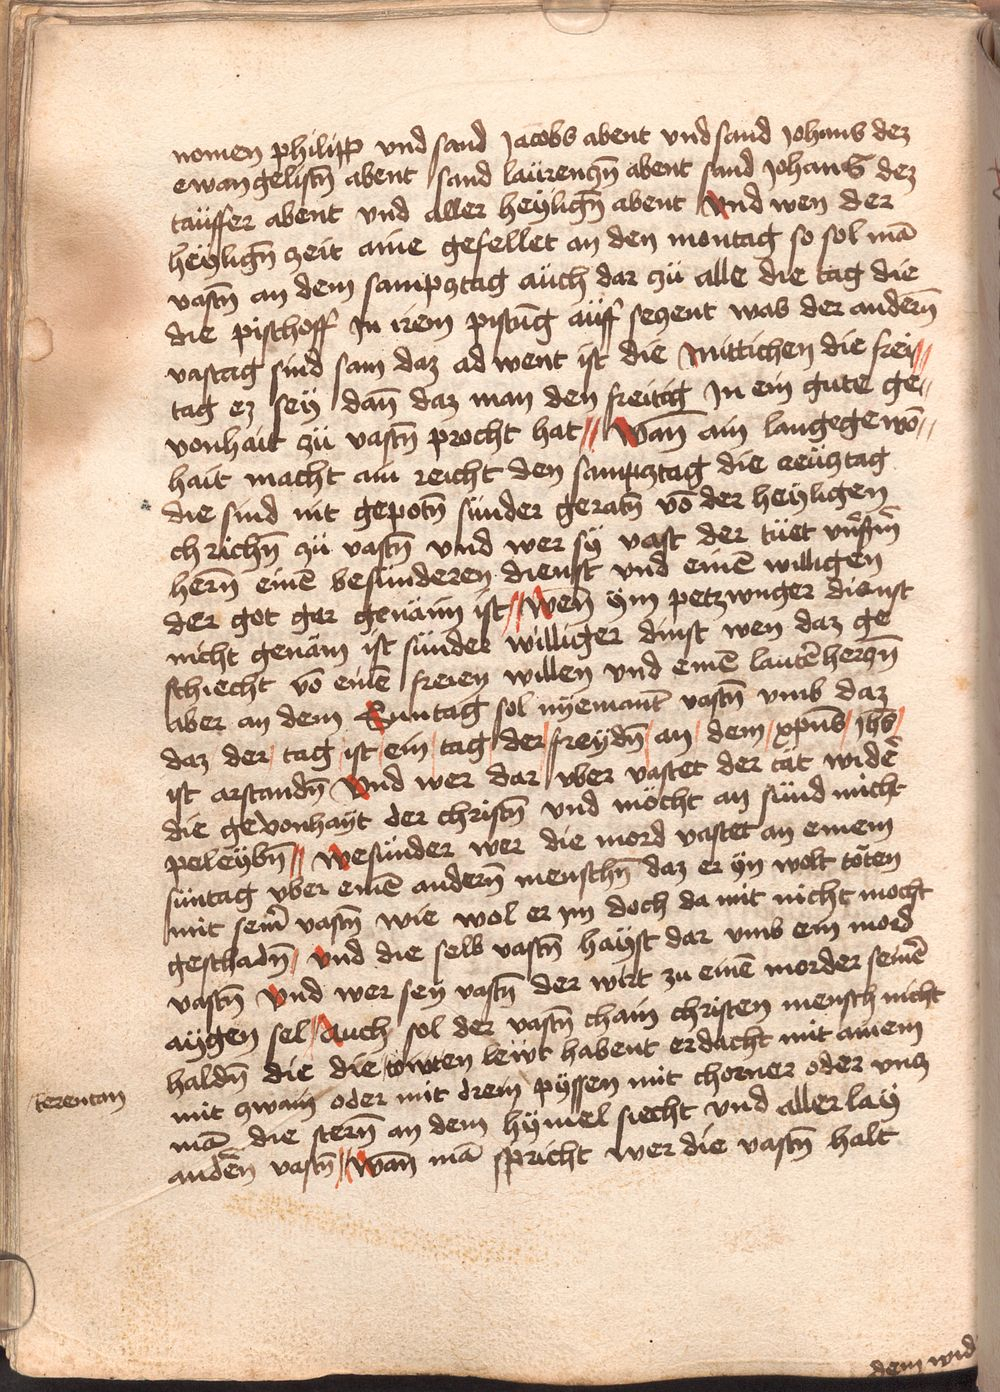 nomen philipp vnd sand Jacobs abent vnd sand Johans dez
ewangelistñ abent sand laürenczñ abent sand Johans dez
taüffer abent vnd aller heÿligñ abent vnd wen der
heÿligñ zeit aine gefellet an den montag so sol mā
vastñ an dem sampcztag aüch dar zü alle die tag die
die pischoff Jn irem pistūg aüff seczent was der anderñ
vastag sind sam daz ad went ist die mittichen die freÿ
tag ez seÿ dañ daz man den freitag Jn ein gute ge
vonhait zü vastñ procht hat // Wañ ain langegewō
hait macht ain reicht den sampcztag die
die sind nit gepotñ sünder geratñ vō der heÿligen
chrichñ zü vastñ vnd wer sÿ vast der tüet
herñ einē besünderen dienst vnd einē willigen
der got gar genäm ist // Wen ÿm petzwnger dienst
nicht genäm ist sünder williger dinst wen daz ge
schiecht vō einē freien willen vnd einē lautē herczñ
aber an dem Suntag sol nyemant vastñ vmb daz
daz der tag ist ein tag der freÿdñ an dem xp̄us ih̄s
ist arstandñ Vnd wer dar vber vastet der tät widē
die gevonhaÿt der christñ vnd möcht an sünd nicht
peleÿbñ // Wesünder wer die mord vastet an einem
süntag vber einē anderñ menschñ daz er ÿn wolt töten
mit sem̄ vastñ wie wol er ym doch da mit nicht mocht
geschadñ / vnd die selb vastñ haÿst dar vmb ein mord
vastñ vnd wer seÿ vastñ der wirt zu einē morder seinē
aÿgen sel / Auch sol der vastñ chain christen mensch nicht
haldñ die die lewt habent erdacht mit ainem
mit zwain oder mit drein pÿssen mit chorner oder vncz
mā die sterñ an dem hÿmel siecht vnd aller laÿ
andēn vastñ // Wañ mā spricht wer die vastñ halt
terentan
dem wid